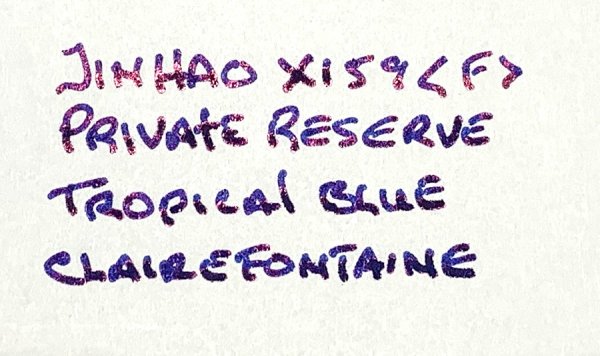 JINHAO X159 <F>
PRIVATE RESERVE
TROPICAL BLUE
CLAIREFONTAINE